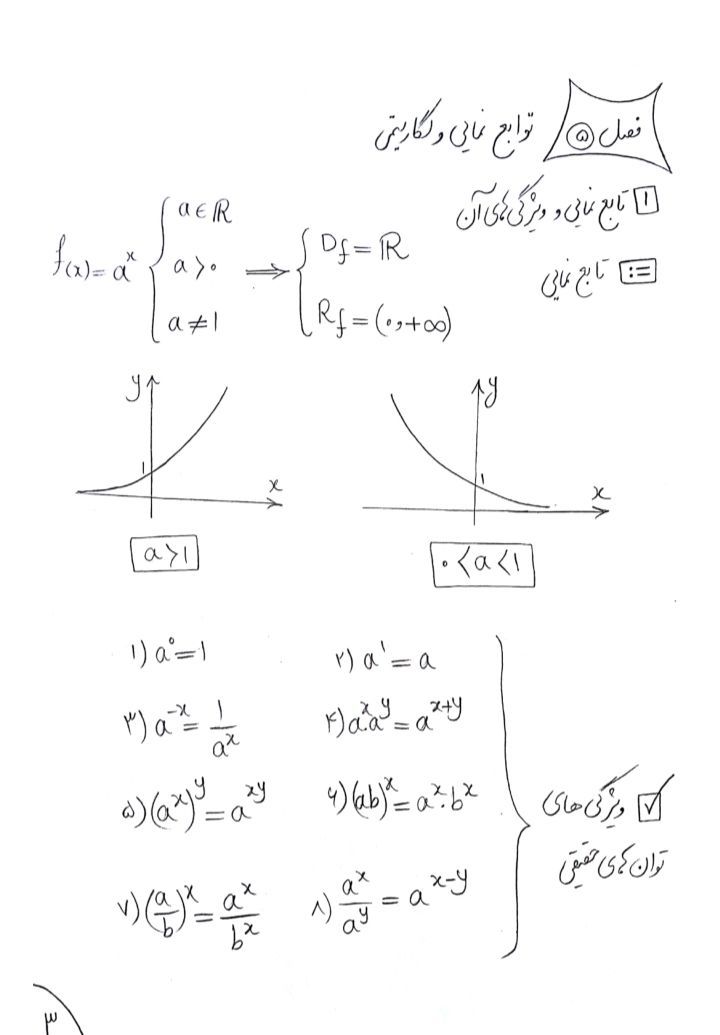 فصل ۵ توابع نمایی و لگاریتمی
۱ تابع نمایی و ویژگی های آن
:= تابع نمایی
f(x)= a^x { a∈ℝ , a>۰ , a≠۱ ⟹ { D_f = ℝ , R_f = (۰,+∞)
y ۱ x
y ۱ x
a>۱
۰<a<۱
✓ ویژگی های
توان های حقیقی
۱) a^۰=۱ ۲) a^۱=a
۳) a^{-x} = ۱/a^x ۴) a^x.a^y = a^{x+y}
۵) (a^x)^y = a^{xy} ۶) (ab)^x = a^x.b^x
۷) (a/b)^x = a^x/b^x ۸) a^x/a^y = a^{x-y}
۳